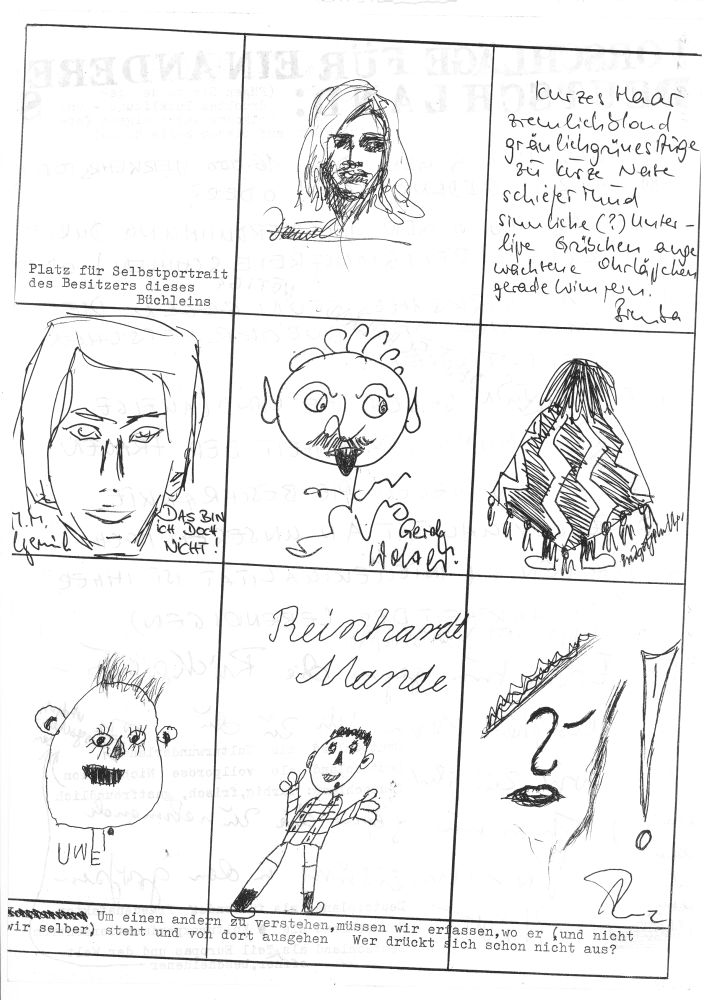 Platz für Selbstportrait
des Besitzers dieses
Büchleins
kurzes Haar
ziemlich blond
gräulichgrünes Auge
zu kurze Nase
schiefer Mund
sinnliche (?) Unter-
lipe Grübchen ange
wachsene Ohrläpchen
gerade Wimpern.
DAS BIN
ICH DOCH
NICHT!
UWE
Reinhardt
Mande
Um einen andern zu verstehen,müssen wir erfassen,wo er (und nicht
wir selber) steht und von dort ausgehen Wer drückt sich schon nicht aus?